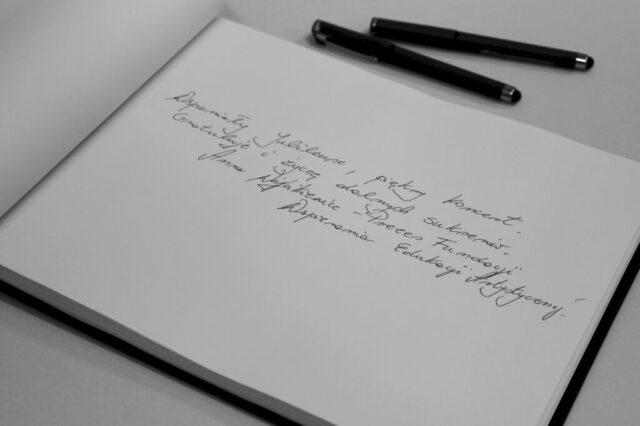 Wspaniały Jubileusz, piękny koncert.
Gratuluję i życzę dalszych sukcesów.
Anna - Prezes Fundacji
Wspierania Edukacji Artystycznej!